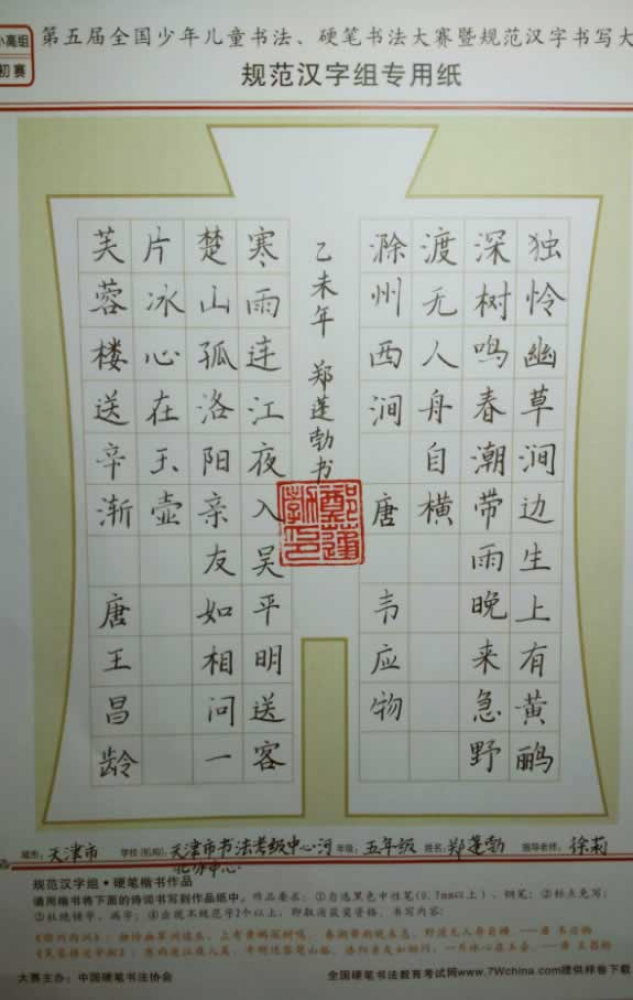 小高组
初赛
第五届全国少年儿童书法、硬笔书法大赛暨规范汉字书写大
规范汉字组专用纸
独怜幽草涧边生上有黄鹂
深树鸣春潮带雨晚来急野
渡无人舟自横
滁州西涧 唐 韦应物
乙未年 郑蓬勃书
寒雨连江夜入吴平明送客
楚山孤洛阳亲友如相问一
片冰心在玉壶
芙蓉楼送辛渐 唐王昌龄
天津市 学校(机构): 天津市书法考级中心河北分中心 年级: 五年级 姓名: 郑蓬勃 指导老师: 徐莉
规范汉字组·硬笔楷书作品
请用楷书将下面的诗词书写到作品纸中。作品要求:①自选黑色中性笔(0.7mm以上)、钢笔;②标点免写;
③杜绝错字、漏字;④出现不规范字2个以上,即取消获奖资格。书写内容:
《滁州西涧》:独怜幽草涧边生,上有黄鹂深树鸣。春潮带雨晚来急,野渡无人舟自横。——唐 韦应物
《芙蓉楼送辛渐》:寒雨连江夜入吴,平明送客楚山孤。洛阳亲友如相问,一片冰心在玉壶。——唐 王昌龄
大赛主办:中国硬笔书法协会
全国硬笔书法教育考试网www.7Wchina.com提供样卷下载